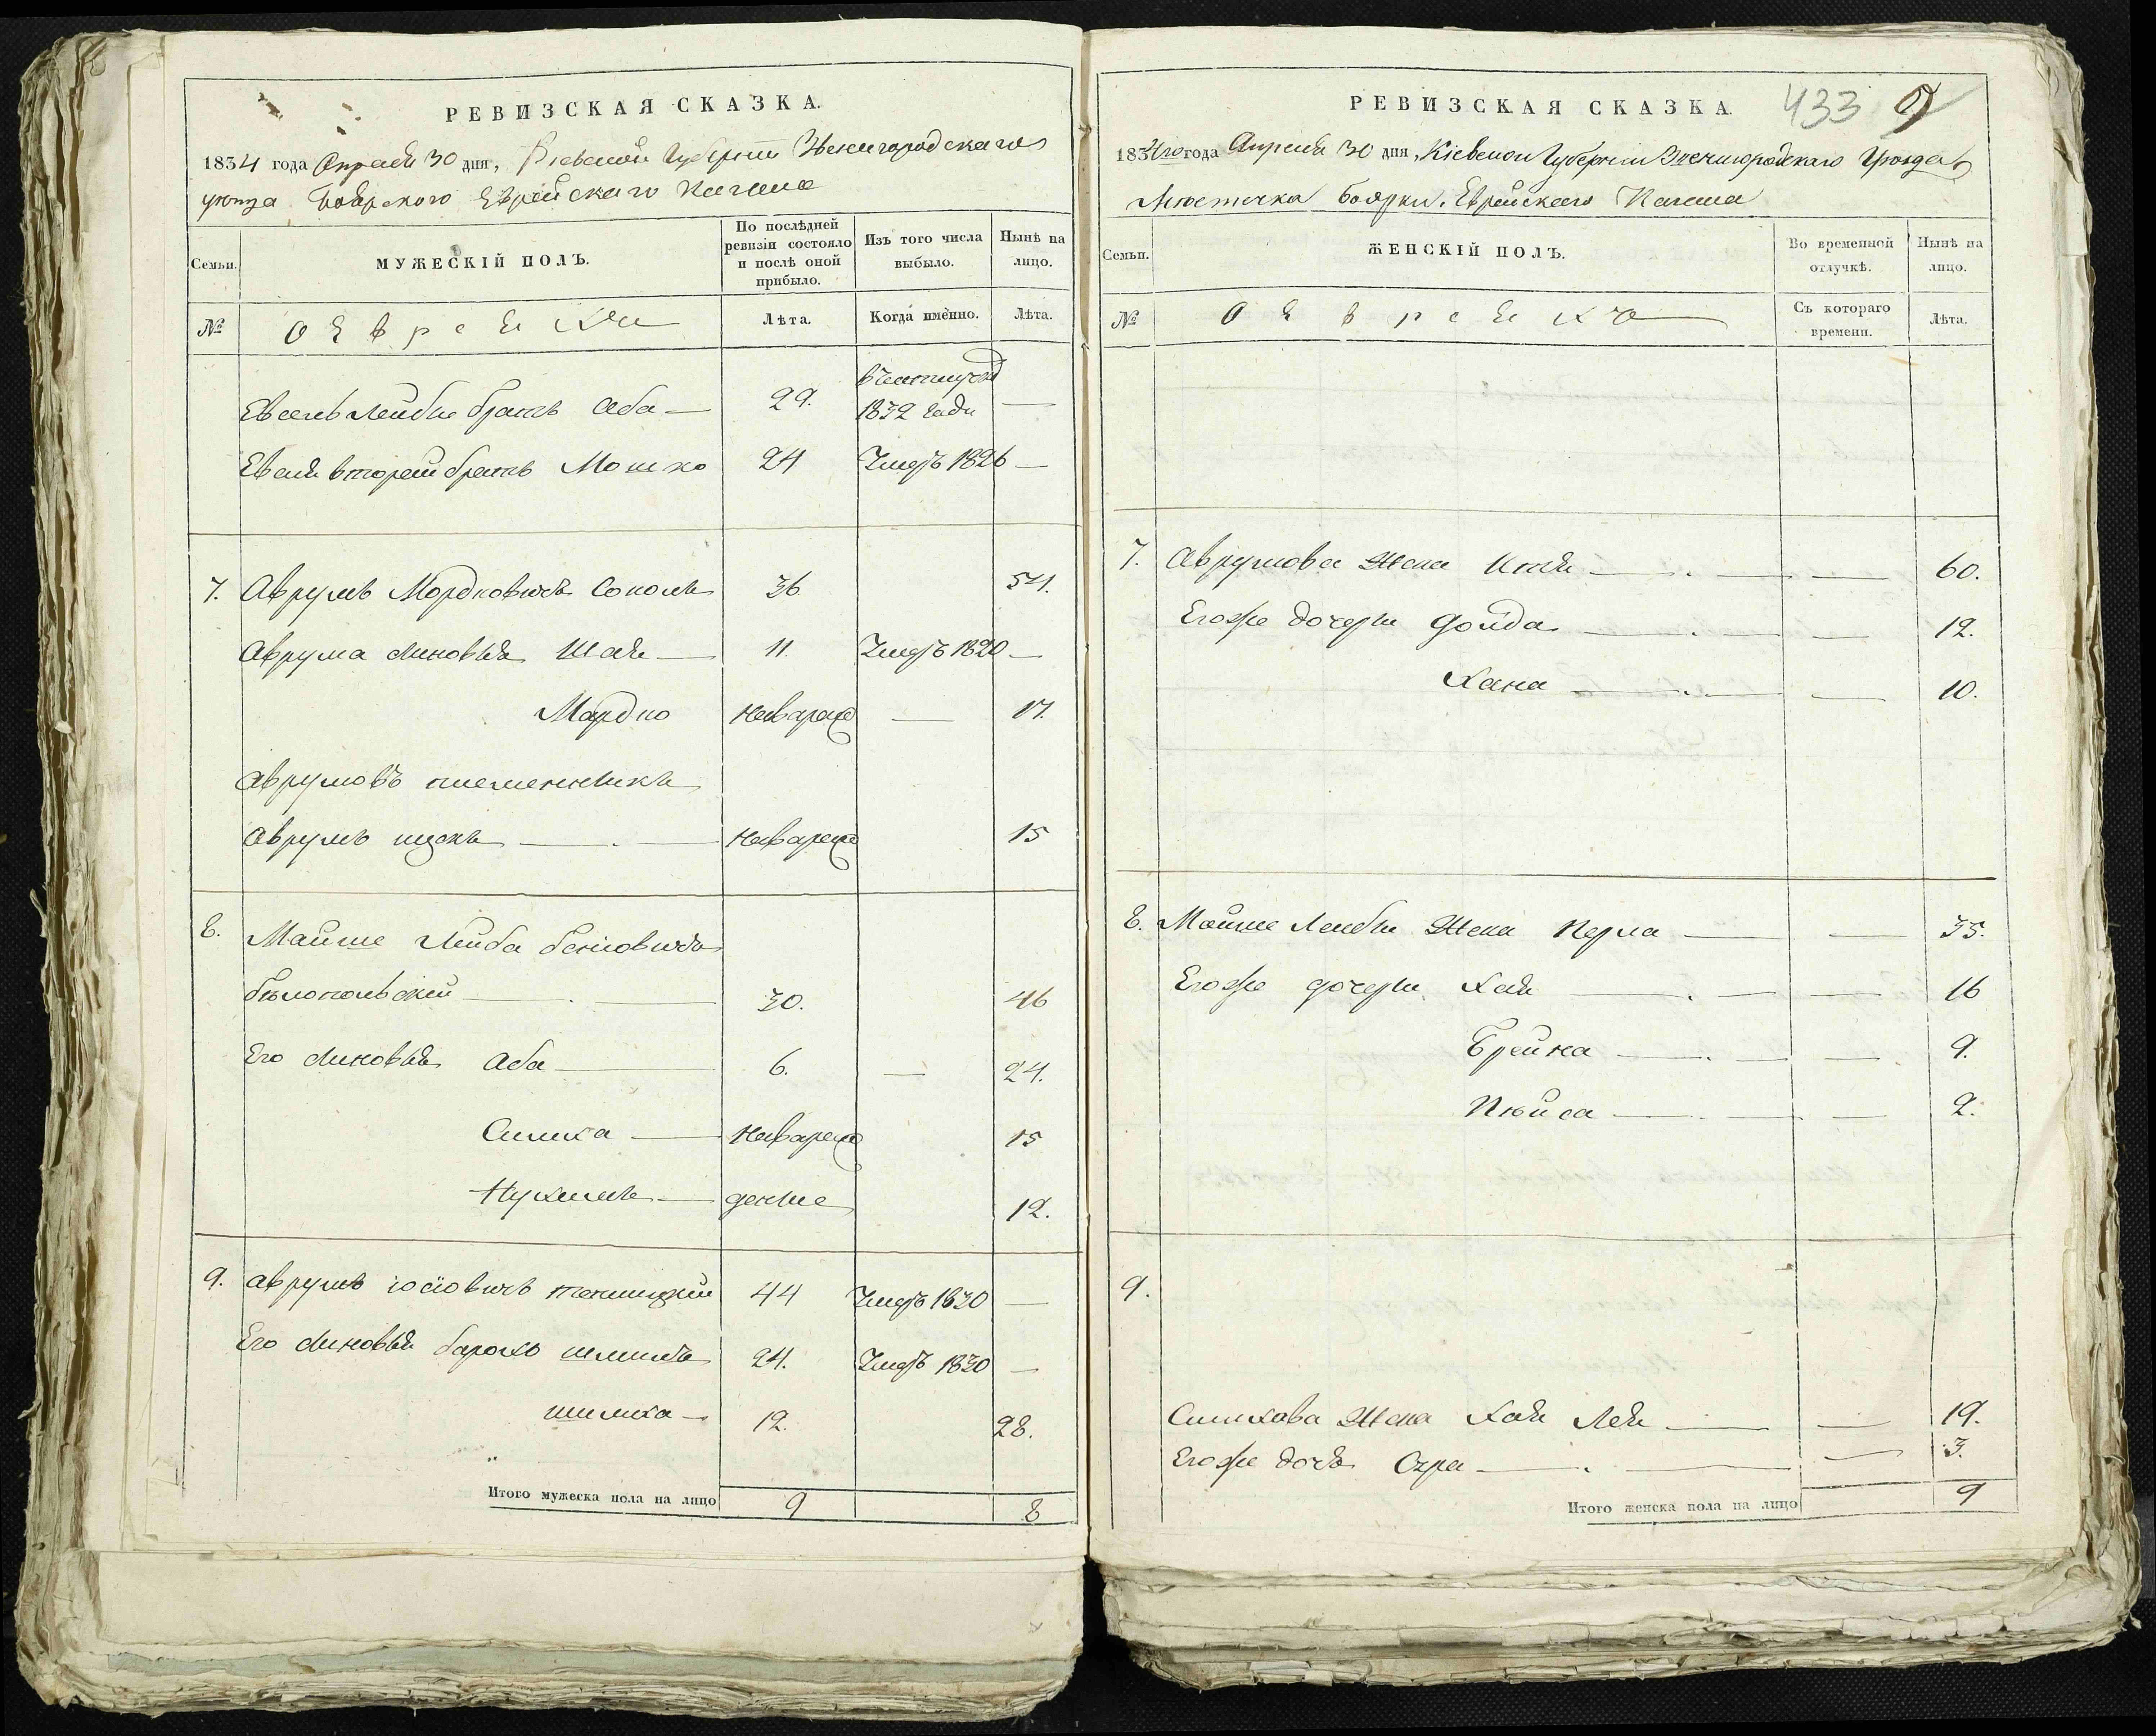 РЕВИЗСКАЯ СКАЗКА.
1834 года Апреля 30 дня, Кіевской Губерніи Звенигородскаго
уезда Боярского Еврейскаго Кагала
Семьи.
МУЖЕСКІЙ ПОЛЪ.
По послѣдней ревизіи состояло и послѣ оной прибыло.
Изъ того числа выбыло.
Нынѣ на лицо.
№
О Евреяхъ
Лѣта.
Когда имѣнно.
Лѣта.
Лейбы братъ Аба — 29. 1832 года —
второй братъ Мошко 24 Умеръ 1826 —
7. Аврумъ Мордковичъ Соколъ 36 54.
Аврума сыновья Шая — 11. Умеръ 1820 —
Мордко — 17.
Аврумовъ племенникъ
Аврумъ Ицокъ — 15
8. Мойше Лейба Беніовичъ
Бѣлопольскій — 30. 46
Его сыновья Аба — 6. — 24.
Симха — 15
Нухимъ — 12.
9. Аврумъ Іосіовичъ 44 Умеръ 1830 —
Его сыновья Борохъ 24. Умеръ 1830 —
Шимха — 12. 28.
Итого мужеска пола на лицо 9 8
РЕВИЗСКАЯ СКАЗКА.
433 9
1834го года Апреля 30 дня, Кіевской Губерніи Звенигородскаго Уѣзда
Мюстечка Боярки. Еврейскаго Кагала
Семьи.
ЖЕНСКІЙ ПОЛЪ.
Во временной отлучкѣ.
Нынѣ на лицо.
№
О Евреяхъ
Съ котораго времени.
Лѣта.
7. Аврумова Жена — — 60.
Егоже дочери Фойда — — 12.
Хана — — 10.
8. Мойше Лейбы Жена Перла — — 35.
Егоже дочери Хая — — 16
Брейна — — 9.
Пейса — — 2.
9.
Симхова Жена Хая Лея — — 19.
Егоже дочь Сура — — 3.
Итого женска пола на лицо 9